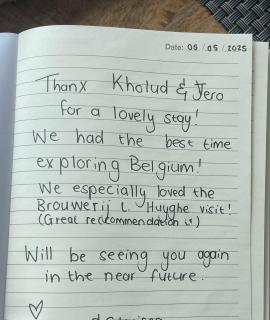 Date: 05 / 05 / 2025
Thanx Kholud & Jero
for a lovely stay!
We had the best time
exploring Belgium!
We especially loved the
Brouwerij L. Huyghe visit!
(Great recommendation is)
Will be seeing you again
in the near future.
♡